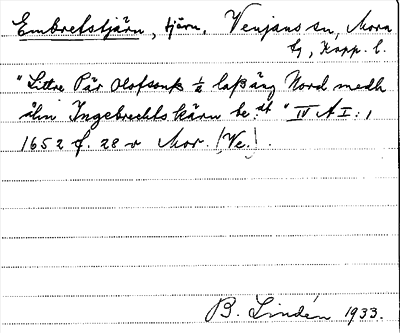 Embretstjärn, tjärn, Venjans sn, Mora
tg, Kopp. l.
"Littre Pär Olofsons ½ laß äng Nord medh
åhn Ingebrechts kärn be:dt" IV A I: 1
1652 f. 28 v Mor. (Ve.).
B. Lindén 1933.